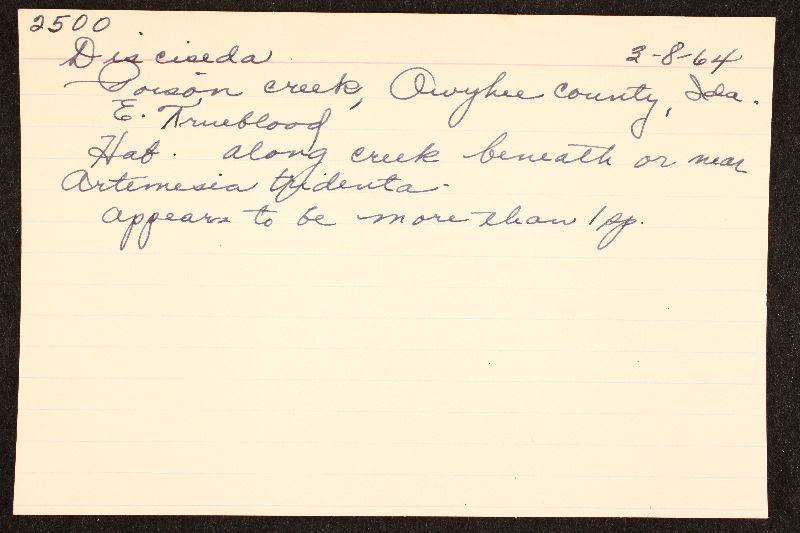 2500
Disciseda 3-8-64
Poison creek, Owyhee county, Ida.
E. Trueblood
Hab. along creek beneath or near
Artemesia tridenta.
appears to be more than 1 sp.